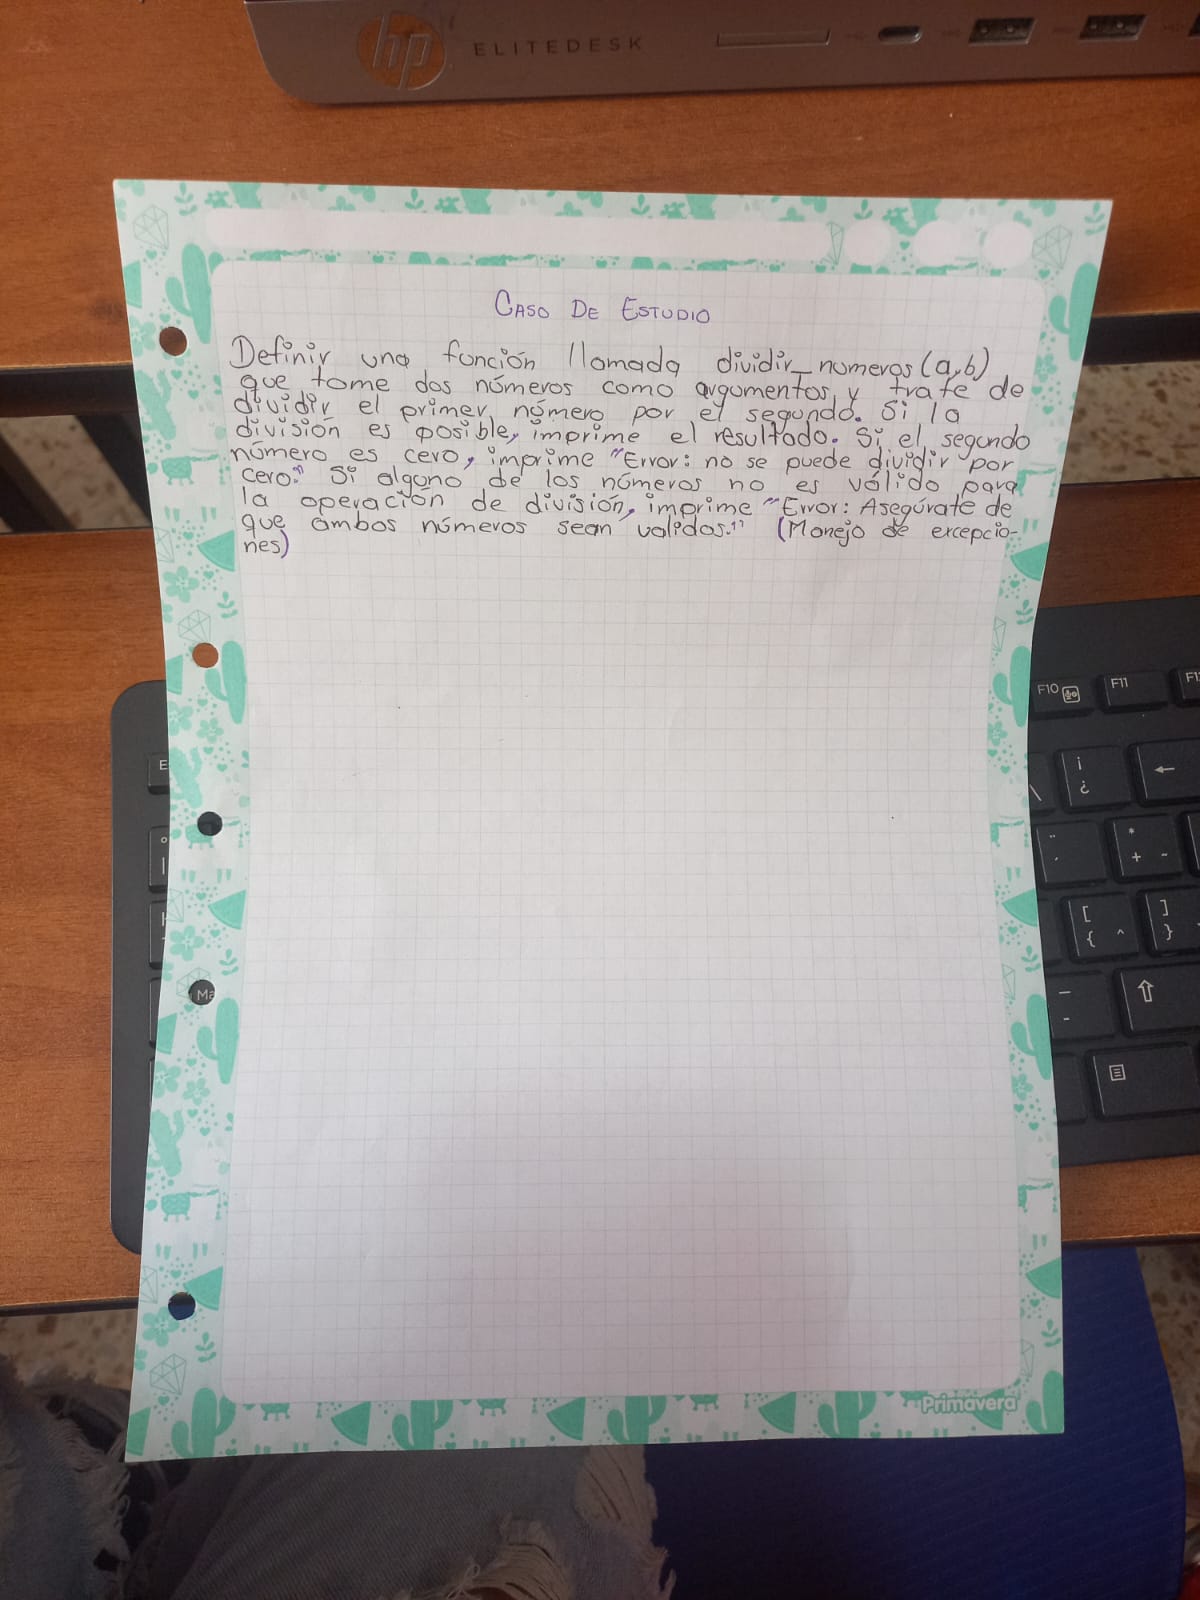 hp ELITEDESK
CASO DE ESTUDIO
Definir una función llamada dividir_numeros(a,b)
que tome dos números como argumentos y trate de
dividir el primer número por el segundo. Si la
división es posible, imprime el resultado. Si el segundo
número es cero, imprime "Error: no se puede dividir por
cero." Si alguno de los números no es válido para
la operación de división, imprime "Error: Asegúrate de
que ambos números sean validos." (Manejo de excepcio-
nes)
F10
F11
Primavera